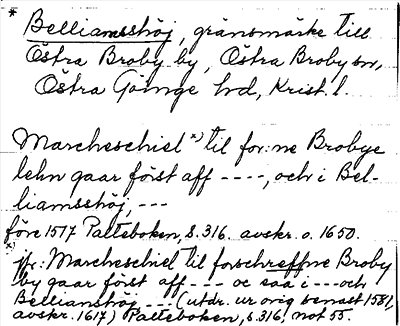 * Belliamshöj, gränsmärke till
Östra Broby by, Östra Broby sn,
Östra Göinge hd, Krist. l.
Marcheschiel x) til for:ne Brobye
lehn gaar först aff ----, och i Bel-
liamsshöj, ---
före 1517 Palteboken, s. 316. avskr. o. 1650.
x) jfr: Marcheschiel til forschreffne Broby
by gaar först aff --- oc saa i --- och
Bellianshöj --- (utdr. ur orig senast 1581,
avskr. 1617) Palteboken, s. 316, not 55.